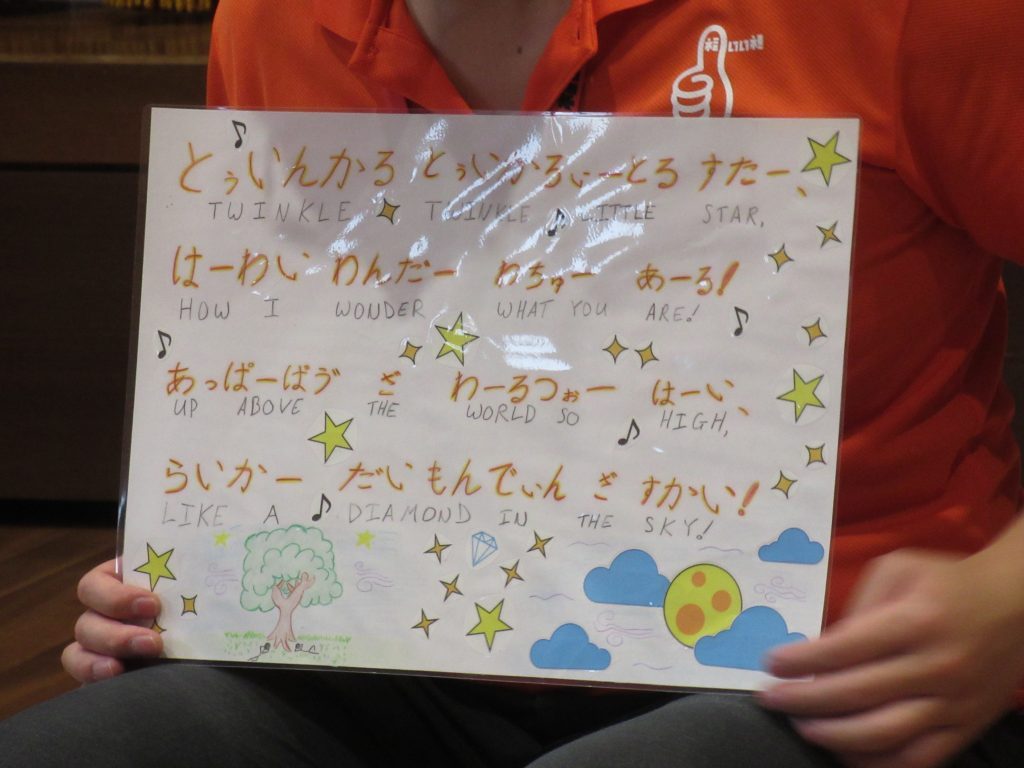 とぅいんかる とぅいんかるぃーとる すたー、
TWINKLE TWINKLE LITTLE STAR,
はーわい わんだー わちゅー あーる!
HOW I WONDER WHAT YOU ARE!
あっぱーばゔ ざ わーるつぉー はーい、
UP ABOVE THE WORLD SO HIGH,
らいかー だいもんでぃん ざ すかい!
LIKE A DIAMOND IN THE SKY!